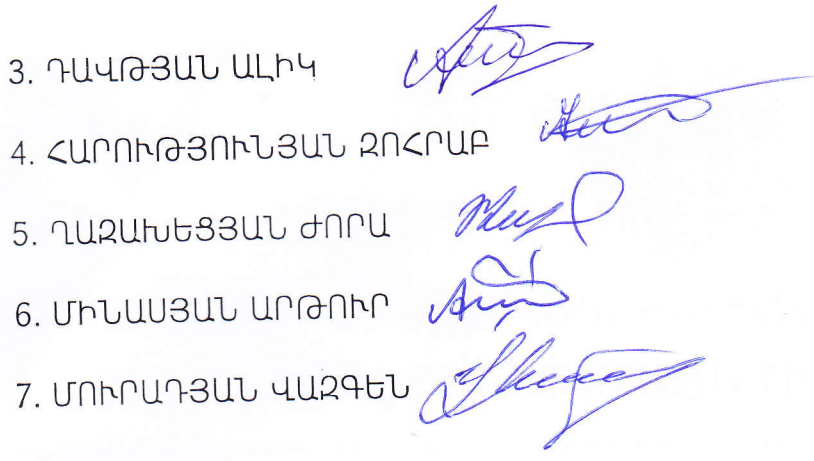 3. ԴԱՎԹՅԱՆ ԱԼԻԿ
4. ՀԱՐՈՒԹՅՈՒՆՅԱՆ ԶՈՀՐԱԲ
5. ՂԱԶԱԽԵՑՅԱՆ ԺՈՐԱ
6. ՄԻՆԱՍՅԱՆ ԱՐԹՈՒՐ
7. ՄՈՒՐԱԴՅԱՆ ՎԱԶԳԵՆ